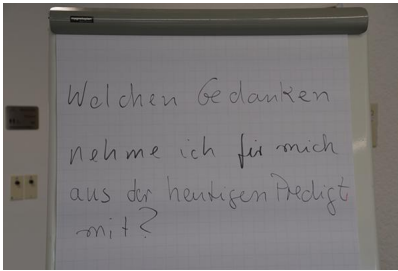 Welchen Gedanken
nehme ich für mich
aus der heutigen Predigt
mit?